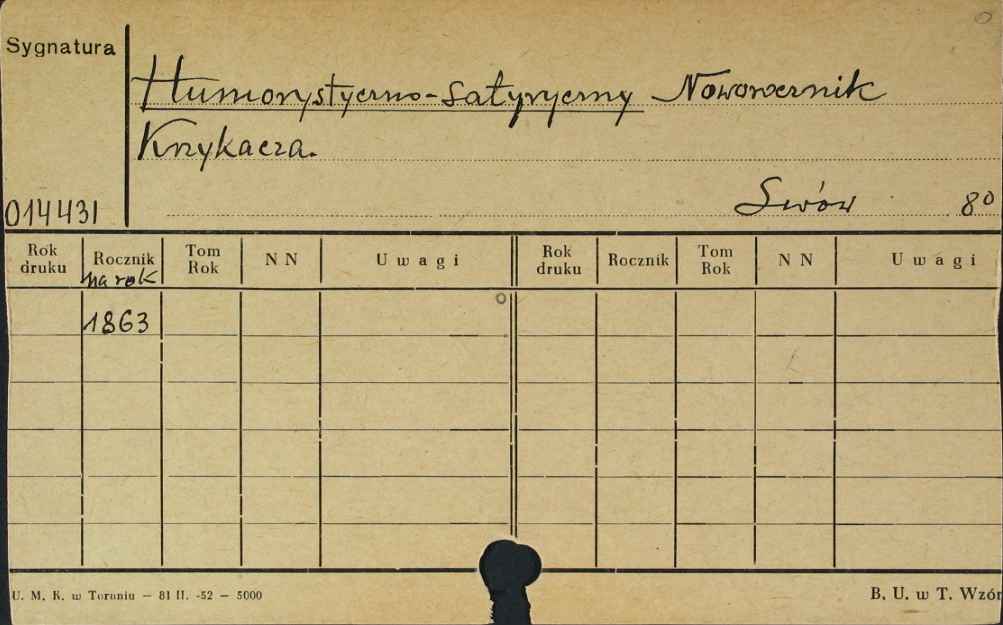 Sygnatura
Humorystyczno-Satyryczny Noworocznik
Krzykacza.
014431
Lwów 8⁰
Rok druku Rocznik Tom Rok NN Uwagi Rok druku Rocznik Tom Rok NN Uwagi
na rok
1863
U. M. K. w Toruniu — 81 II. -52 — 5000
B. U. w T. Wzór